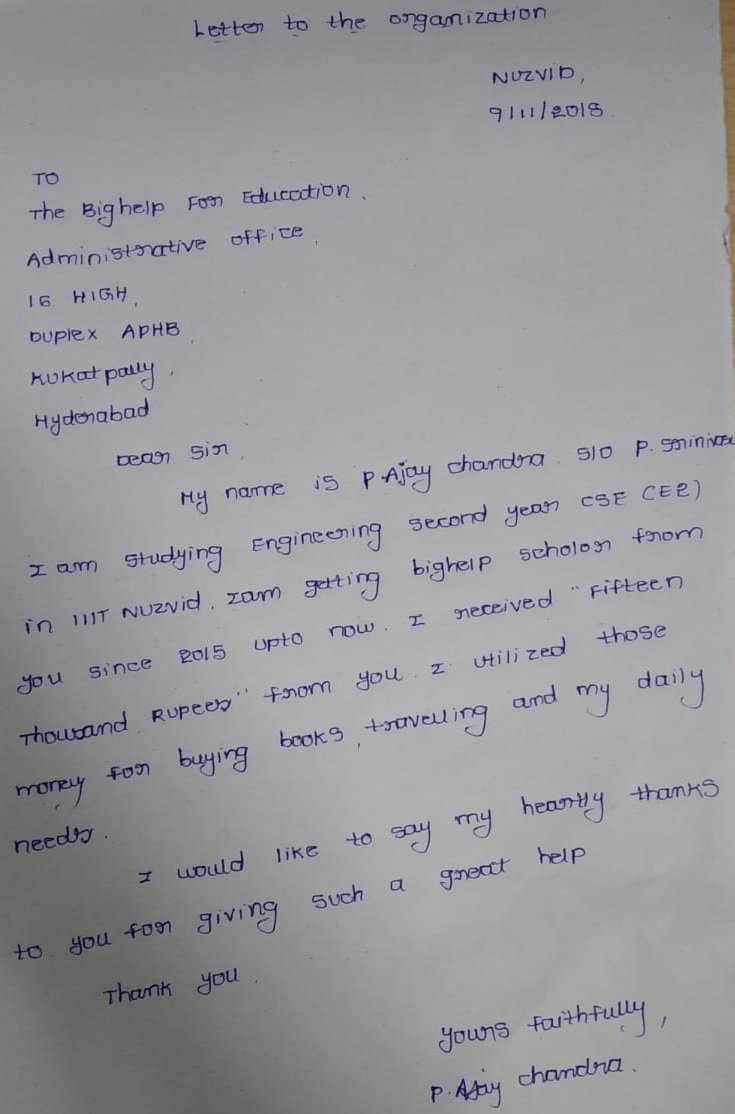 Letter to the organization
NUZVID,
9/11/2018
TO
The Bighelp For Education.
Administrative office,
16 HIGH,
Duplex APHB,
Kukatpally,
Hyderabad
Dear Sir,
My name is P.Ajay chandra S/O P.
I am studying Engineering second year CSE (E2)
in IIIT NUZVid. Iam getting bighelp scholor from
you since 2015 upto now. I received "Fifteen
Thousand Rupees" from you. I utilized those
money for buying books, travelling and my daily
needs.
I would like to say my heartly thanks
to you for giving such a great help
Thank you.
yours faithfully,
P.Ajay chandra.